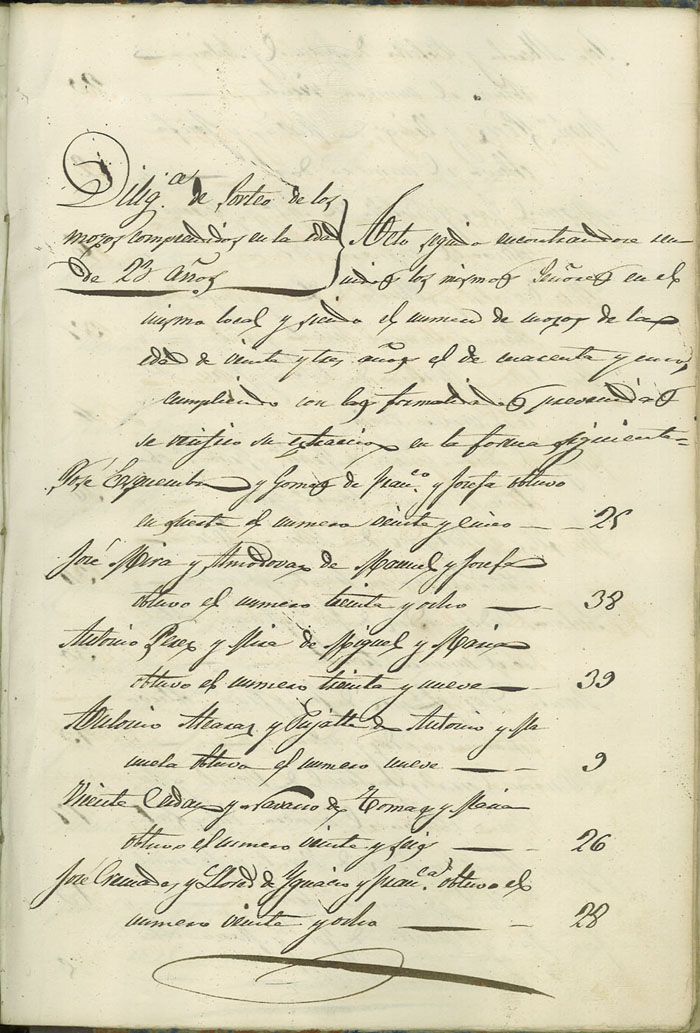 Dilig.as de Sorteo de los
mozos comprendidos en la edad
de 23 años
Acto seguido encontrandose reu-
nidos los mismos Señores en el
mismo local y siendo el numero de mozos de la
edad de veinte y tres años el de cuarenta y cinco,
cumpliendo con las formalidades prevenidas
se verifico su extraccion en la forma siguiente=
José Ezquembre y Gomas de Fran.co y Josefa obtuvo
en suerte el numero veinte y cinco — 25
José Mira y Amodovar de Manuel y Josefa
obtuvo el numero treinta y ocho — 38
Antonio Perez y Mira de Miguel y Maria
obtuvo el numero treinta y nueve — 39
Antonio Alcaraz y de Antonio y Ma
nuela obtuvo el numero nueve — 9
Vicente y Navarro de Tomas y Maria
obtuvo el numero veinte y seis — 26
José Cremades y Llored de Ygnacio y Fran.ca obtuvo el
numero veinte y ocho — 28